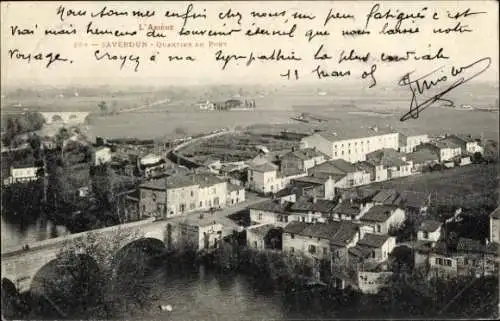 L'Ariège
Nous sommes enfin chez nous un peu fatigués c'est
vrai mais heureux du souvenir eternel que nous laisse notre
254 - SAVERDUN - Quartier du Port
voyage. Croyez à ma sympathie la plus cordiale
11 mars 05